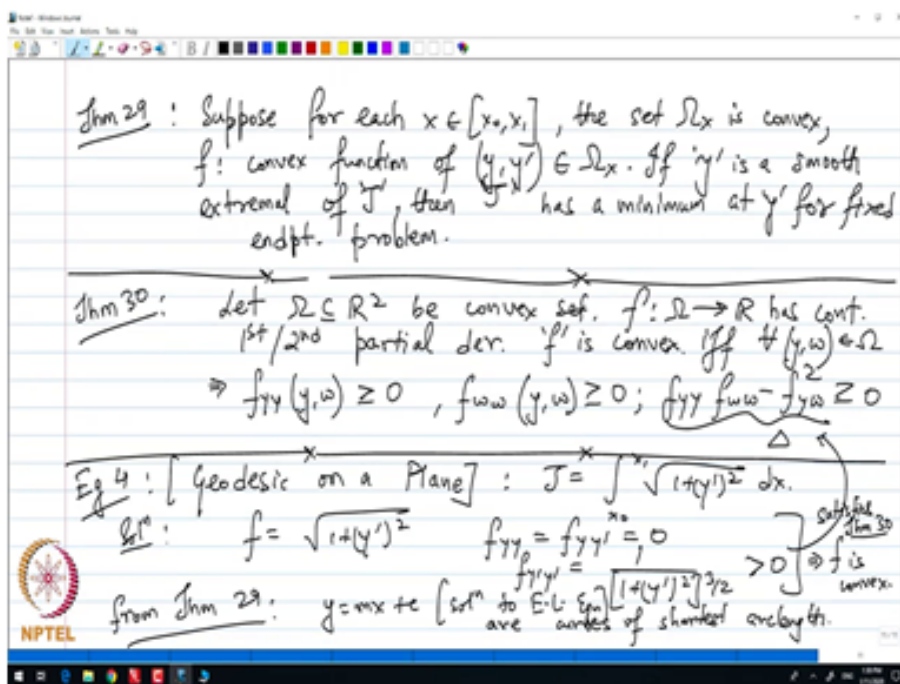 Thm 29 : Suppose for each x ∈ [x₀, x₁], the set Ωₓ is convex,
f : convex function of (y, y') ∈ Ωₓ. If 'y' is a smooth
extremal of 'J', then 'J' has a minimum at 'y' for fixed
endpt. problem.
Thm 30 : Let Ω ⊆ ℝ² be convex set. f : Ω → ℝ has cont.
1st / 2nd partial der. 'f' is convex. Iff ∀ (y, ω) ∈ Ω
⇒ f_yy (y, ω) ≥ 0 , f_ωω (y, ω) ≥ 0 ; f_yy f_ωω − f_yω² ≥ 0
Δ
Eg 4 : [Geodesic on a Plane] : J = ∫_{x₀}^{x₁} √(1+(y')²) dx.
Solⁿ : f = √(1+(y')²) f_yy = f_yy' = 0
f_y'y' = 1/[1+(y')²]^{3/2} > 0 ] ⇒ f is convex.
satisfies Thm 30
from Thm 29 : y = mx + c [solⁿ to E-L Eqn]
are curves of shortest arclength.
NPTEL